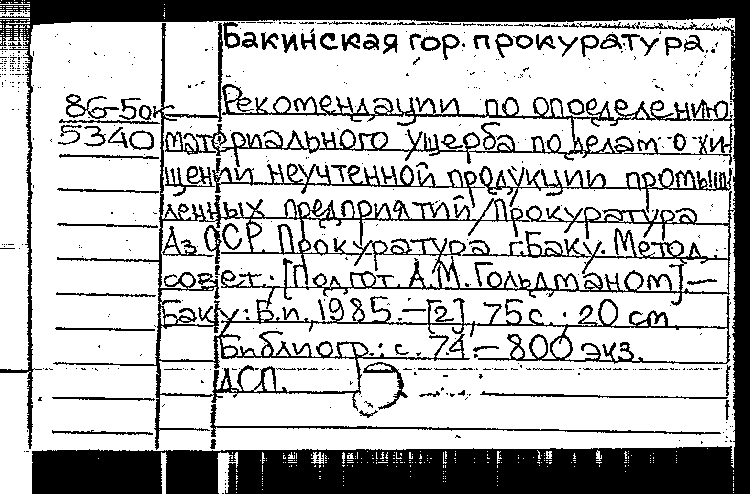 Бакинская гор. прокуратура.
86-5ок
5340
Рекомендации по определению
материального ущерба по делам о хи-
щении неучтенной продукции промыш
ленных предприятий/Прокуратура
Аз ССР. Прокуратура г.Баку. Метод.
совет.; [Подгот. А.М. Гольдманом].—
Баку: Б.и., 1985.—[2], 75с.; 20 см.
Библиогр.: с. 74 — 800 экз.
ДСП.